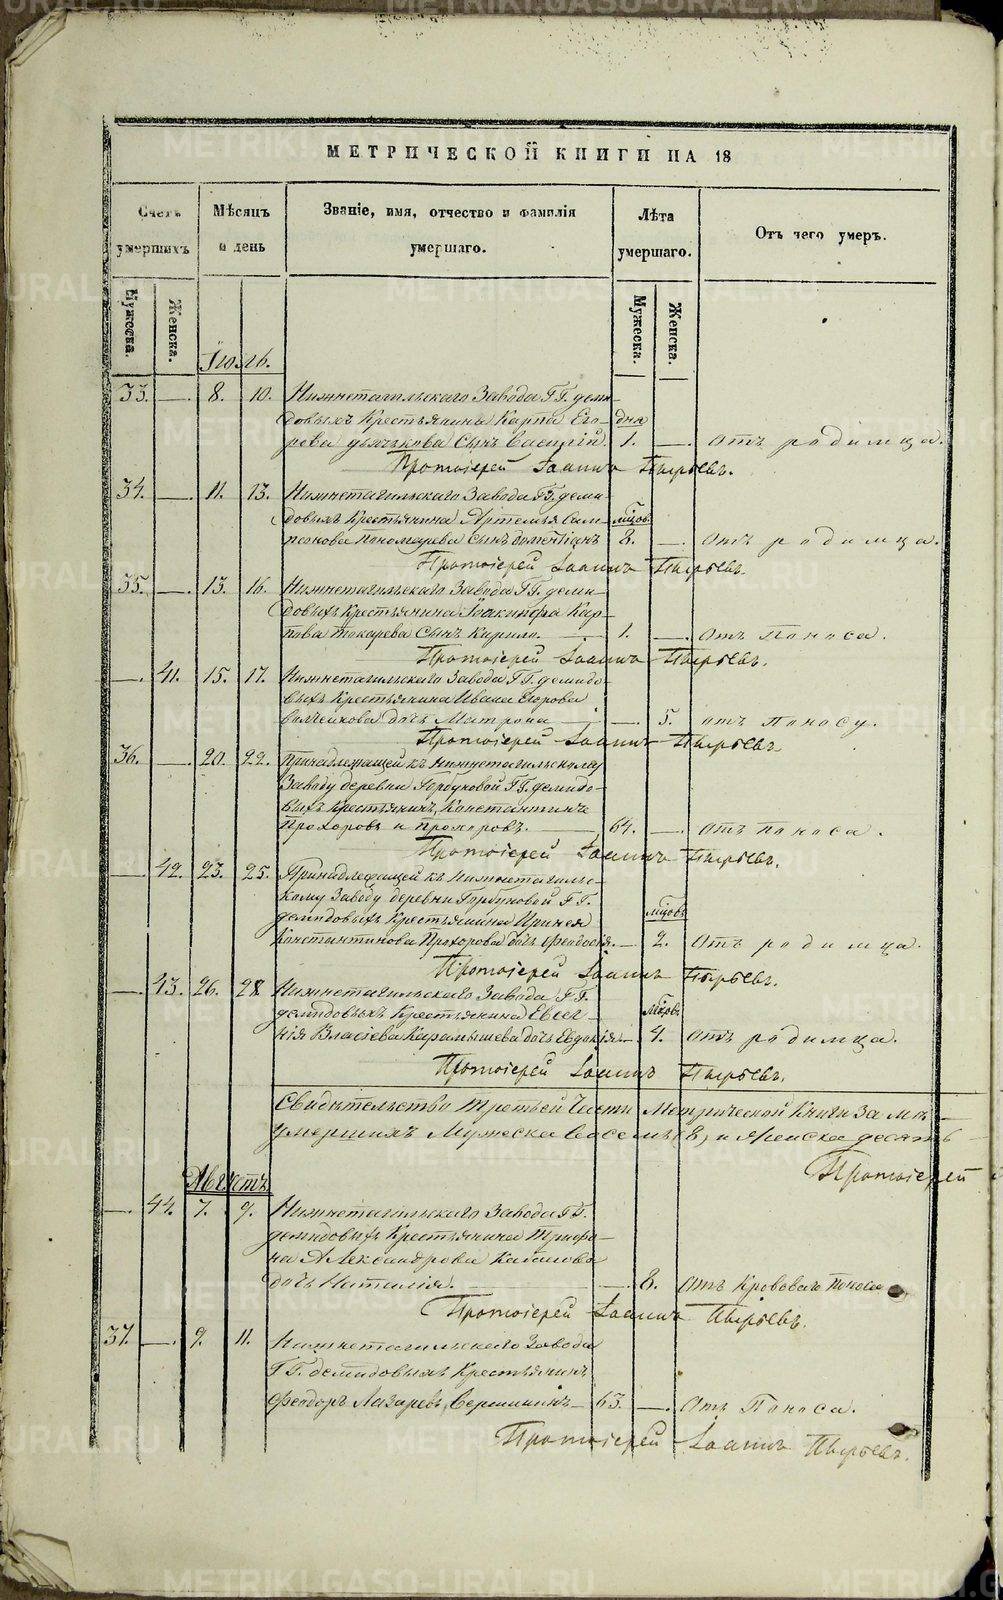 МЕТРИЧЕСКОЙ КНИГИ НА 18
Счетъ умершихъ
Мѣсяцъ и день
Званіе, имя, отчество и фамилія умершаго.
Лѣта умершаго.
Отъ чего умеръ.
Мужеска.
Женска.
Мужеска.
Женска.
Іюль.
33. — 8. 10. Нижнетагильскаго Завода Г.Г. Деми-
довыхъ Крестьянина Карпа Его- дня
рова Дьячкова Сынъ Василій. 1. — отъ родимца.
Протоіерей Іоаннъ Пырьевъ.
34. — 11. 13. Нижнетагильскаго Завода Г.Г. Деми-
довыхъ Крестьянина Артемья Сам- мѣсцовъ
псонова Пономарева Сынъ Дометіанъ 8. — отъ родимца.
Протоіерей Іоаннъ Пырьевъ.
35. — 13. 16. Нижнетагильскаго Завода Г.Г. Деми-
довыхъ Крестьянина Іакинфа Кар-
пова Токарева Сынъ Кирило. — 1. — отъ Поноса.
Протоіерей Іоаннъ Пырьевъ.
— 41. 15. 17. Нижнетагильскаго Завода Г.Г. Демидо-
выхъ Крестьянина Ивана Егорова
дочь Матрона — — 5. отъ Поносу.
Протоіерей Іоаннъ Пырьевъ
36. — 20. 22. Принадлежащей къ Нижнетагильскому
Заводу деревни Горбуновой Г.Г. Демидо-
выхъ крестьянинъ, Константинъ
Прохоровъ и Прохоровъ. — 64. — отъ поноса.
Протоіерей Іоаннъ Пырьевъ.
— 42. 23. 25. Принадлежащей къ Нижнетагильс-
кому Заводу деревни Горбуновой Г.Г.
Демидовыхъ Крестьянина Иринея мѣсцовъ
Константинова Прохорова дочь Феодосія. — 2. отъ родимца.
Протоіерей Іоаннъ Пырьевъ.
— 43. 26. 28. Нижнетагильскаго Завода Г.Г.
Демидовыхъ Крестьянина Евсег- мѣсцовъ.
нія Власіева Карамышева дочь Евдокія. — 4. отъ родимца.
Протоіерей Іоаннъ Пырьевъ.
Свидѣтельство Третьей Части Метрической Книги За
умершихъ Мужеска восемь (8) и Женска десять
Протоіерей
Августъ
— 44. 7. 9. Нижнетагильскаго Завода Г.Г.
Демидовыхъ Крестьянина Трифо-
на Александрова Кабанова
дочь Наталія. — — 8. отъ Кроваваго поноса
Протоіерей Іоаннъ Пырьевъ.
37. — 9. 11. Нижнетагильскаго Завода
Г.Г. Демидовыхъ Крестьянинъ
Феодоръ Лазаревъ Вершининъ — 63. — отъ Поноса.
Протоіерей Іоаннъ Пырьевъ.
METRIKI.GASO-URAL.RU